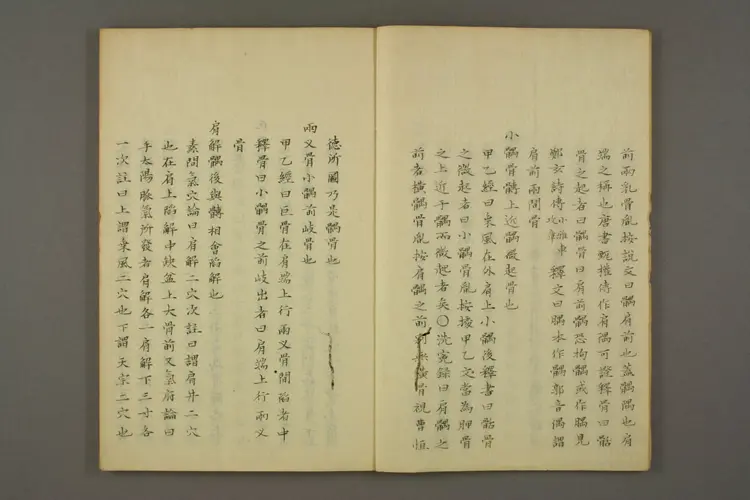 前兩乳骨胤按說文曰髃肩前也蓋髃隅也肩
端之稱也唐書甄權傳作肩隅可證釋骨曰骷
骨之起者曰髃骨曰肩前髃恐拘髃或作腢見
鄭玄詩傳小雅車攻章釋文曰腢本作髃郭音偶謂
肩前兩間骨
小髃骨髆上近髃微起骨也
甲乙經曰秉風在外肩上小髃後釋書曰骷骨
之微起者曰小髃骨胤按據甲乙文當為胛骨
之上近于髃而微起者矣○洗冤錄曰肩髃之
前者橫髃骨胤按肩髃之前橫骨視曹恒
德所圖乃是髃骨也
兩叉骨小髃前岐骨也
甲乙經曰巨骨在肩端上行兩叉骨間陷者中
釋骨曰小髃骨之前岐出者曰肩端上行兩叉
骨
肩解髃後與髆相會陷解也
素問氣穴論曰肩解二穴次註曰謂肩井二穴
也在肩上陷解中缺盆上大骨前又氣府論曰
手太陽脉氣所發者肩解各一肩解下三寸各
一次註曰上謂秉風二穴也下謂天宗二穴也